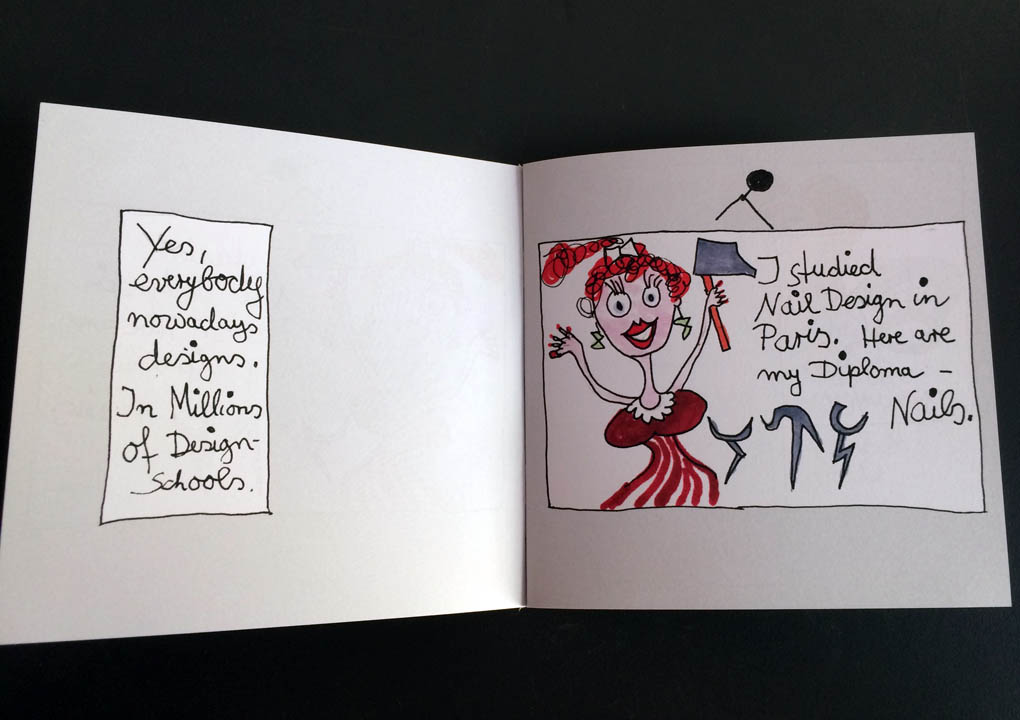 Yes,
everybody
nowadays
designs.
In Millions
of Design-
schools.
I studied
Nail Design in
Paris. Here are
my Diploma -
Nails.